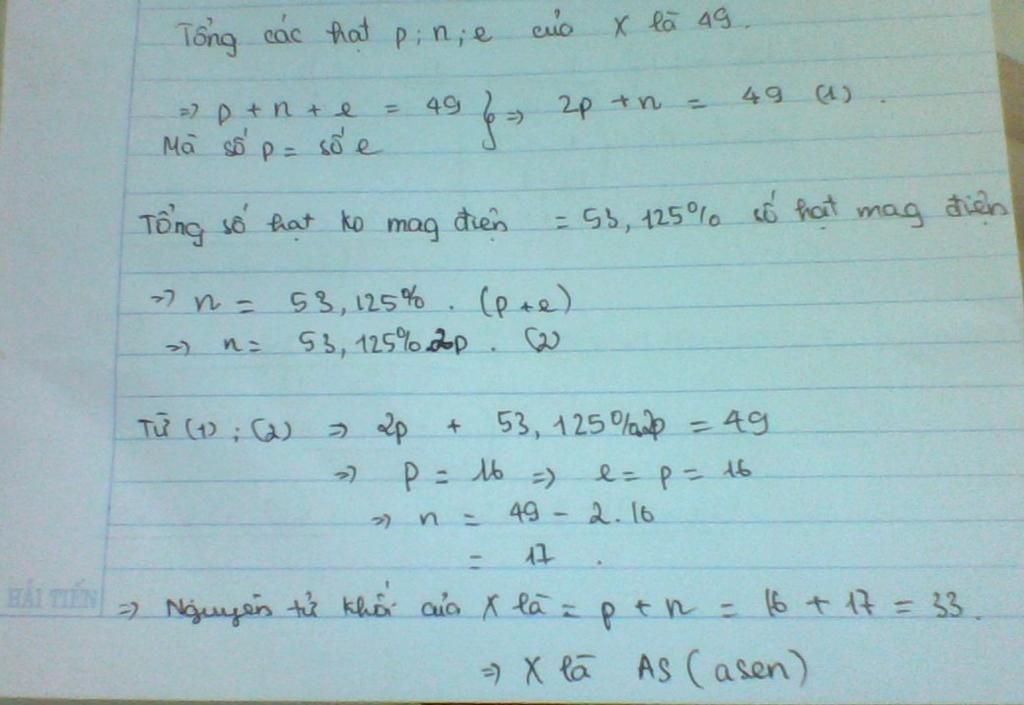 Tổng các hạt p; n; e của X là 49.
=> p + n + e = 49 } => 2p + n = 49 (1).
Mà số p = số e
Tổng số hạt ko mag điện = 53,125% số hạt mag điện
=> n = 53,125% . (p + e)
=> n = 53,125%.2p . (2)
Từ (1) ; (2) => 2p + 53,125%.2p = 49
=> p = 16 => e = p = 16
=> n = 49 - 2.16
= 17 .
HẢI TIẾN
=> Nguyên tử khối của X là = p + n = 16 + 17 = 33.
=> X là AS (asen)